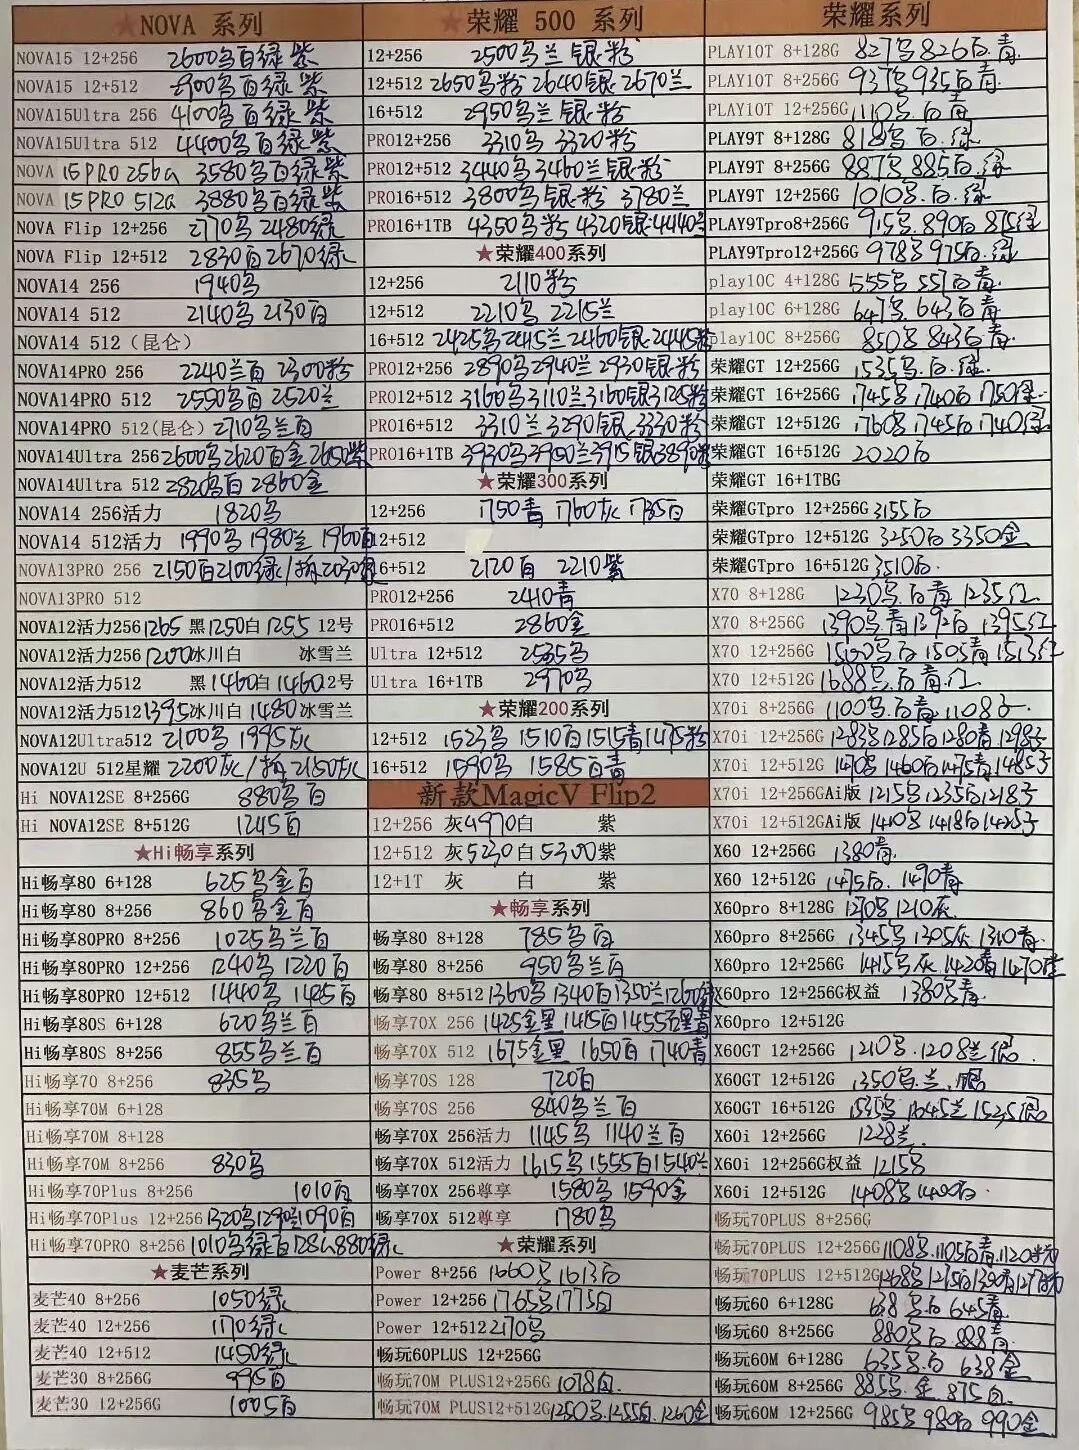 ★NOVA 系列
NOVA15 12+256 2600乌百绿紫
NOVA15 12+512 2900乌百绿紫
NOVA15Ultra 256 4100乌百绿紫
NOVA15Ultra 512 4400乌百绿紫
NOVA 15PRO 256G 3580乌百绿紫
NOVA 15PRO 512G 3880乌百绿紫
NOVA Flip 12+256 2770乌 2480绿
NOVA Flip 12+512 2830百2670绿
NOVA14 256 1940乌
NOVA14 512 2140乌 2130百
NOVA14 512（昆仑）
NOVA14PRO 256 2240兰百 2300粉
NOVA14PRO 512 2550乌百 2520兰
NOVA14PRO 512(昆仑) 2710乌兰百
NOVA14Ultra 256 2600乌2620百金2650紫
NOVA14Ultra 512 2820乌百 2860金
NOVA14 256活力 1820乌
NOVA14 512活力 1990乌 1980兰 1960百
NOVA13PRO 256 2150百2100绿/拆2030绿
NOVA13PRO 512
NOVA12活力256 1265 黑1250白1255 12号
NOVA12活力256 1200冰川白 冰雪兰
NOVA12活力512 黑1460白1460 12号
NOVA12活力512 1395冰川白 1480冰雪兰
NOVA12Ultra512 2100乌 1995灰
NOVA12U 512星耀 2200灰/拆2150灰
Hi NOVA12SE 8+256G 880乌百
Hi NOVA12SE 8+512G 1245百
★Hi畅享系列
Hi畅享80 6+128 625乌金百
Hi畅享80 8+256 860乌金百
Hi畅享80PRO 8+256 1025乌兰百
Hi畅享80PRO 12+256 1240乌 1220百
Hi畅享80PRO 12+512 1440乌 1425百
Hi畅享80S 6+128 620乌兰百
Hi畅享80S 8+256 855乌兰百
Hi畅享70 8+256 835乌
Hi畅享70M 6+128
Hi畅享70M 8+128
Hi畅享70M 8+256 830乌
Hi畅享70Plus 8+256 1010百
Hi畅享70Plus 12+256 1320乌1290兰1090百
Hi畅享70PRO 8+256 1010乌绿百128G880绿
★麦芒系列
麦芒40 8+256 1050绿
麦芒40 12+256 1170绿
麦芒40 12+512 1450绿
麦芒30 8+256G 995百
麦芒30 12+256G 1005百
★荣耀 500 系列
12+256 2500乌兰银粉
12+512 2650乌粉 2640银 2670兰
16+512 2950乌兰银粉
PRO12+256 3310乌 3320粉
PRO12+512 3440乌3460兰银粉
PRO16+512 3800乌银粉 3780兰
PRO16+1TB 4350乌粉 4320银4440兰
★荣耀400系列
12+256 2110粉
12+512 2210乌 2215兰
16+512 2425乌2415兰2460银2445粉
PRO12+256 2890乌2940兰2930银粉
PRO12+512 3160乌3110兰3160银3125粉
PRO16+512 3310兰3290银3330粉
PRO16+1TB 3930乌3950兰3915银3890粉
★荣耀300系列
12+256 1750青 1760灰 1735百
12+512
16+512 2120百 2210紫
PRO12+256 2410青
PRO16+512 2860金
Ultra 12+512 2535乌
Ultra 16+1TB 2970乌
★荣耀200系列
12+512 1523乌 1510百1515青1475粉
16+512 1590乌 1585百青
新款MagicV Flip2
12+256 灰4970白 紫
12+512 灰5230白5300紫
12+1T 灰 白 紫
★畅享系列
畅享80 8+128 785乌百
畅享80 8+256 950乌兰百
畅享80 8+512 1360乌 1340百1350兰1260绿
畅享70X 256 1425金黑 1415百1455玉黑青
畅享70X 512 1675金黑 1650百 1740青
畅享70S 128 720百
畅享70S 256 840乌兰百
畅享70X 256活力 1145乌 1140兰百
畅享70X 512活力 1615乌1555百1540兰
畅享70X 256尊享 1580乌 1590金
畅享70X 512尊享 1780乌
★荣耀系列
Power 8+256 1660乌1613百
Power 12+256 1765乌1775百
Power 12+512 2170乌
畅玩60PLUS 12+256G
畅玩70M PLUS12+256G 1078百
畅玩70M PLUS12+512G 1250乌.1255百.1260金
荣耀系列
PLAY10T 8+128G 827乌826百.青
PLAY10T 8+256G 937乌935百青
PLAY10T 12+256G 1110乌.百青
PLAY9T 8+128G 818乌百.绿
PLAY9T 8+256G 887乌885百.绿
PLAY9T 12+256G 1010乌.百.绿
PLAY9Tpro8+256G 915乌.890百875绿
PLAY9Tpro12+256G 978乌975百.绿
play10C 4+128G 555乌 557百青
play10C 6+128G 647乌643百青
play10C 8+256G 850乌843百青
荣耀GT 12+256G 1535乌.百.绿
荣耀GT 16+256G 1745乌1740百1750金
荣耀GT 12+512G 1760乌1745百1740绿
荣耀GT 16+512G 2020百
荣耀GT 16+1TBG
荣耀GTpro 12+256G 3155百
荣耀GTpro 12+512G 3250百3350金
荣耀GTpro 16+512G 3510百
X70 8+128G 1230乌.百青1235红
X70 8+256G 1390乌青1392百1395红
X70 12+256G 1500乌百1505青1513红
X70 12+512G 1688乌.百青.红
X70i 8+256G 1100乌.百青1108子
X70i 12+256G 1283乌1285百1280青1298子
X70i 12+512G 1470乌1460百1475青1485子
X70i 12+256GAi版 1215乌1235百1218子
X70i 12+512GAi版 1410乌1418百1425子
X60 12+256G 1380青
X60 12+512G 1475百.1470青
X60pro 8+128G 1270乌1210灰
X60pro 8+256G 1345乌1305灰1310青
X60pro 12+256G 1415乌灰1420青1470
X60pro 12+256G权益 1380乌青
X60pro 12+512G
X60GT 12+256G 1210乌.1208兰.银
X60GT 12+512G 1350乌.兰.银
X60GT 16+512G 1535乌 1645兰1525银
X60i 12+256G 1228兰
X60i 12+256G权益 1215乌
X60i 12+512G 1408乌1400百
畅玩70PLUS 8+256G
畅玩70PLUS 12+256G 1108乌.1105百青.1120粉
畅玩70PLUS 12+512G 1268乌1275百1300青1277粉
畅玩60 6+128G 638乌百645青
畅玩60 8+256G 880乌百888青
畅玩60M 6+128G 635乌.百 638金
畅玩60M 8+256G 885乌.金875百
畅玩60M 12+256G 985乌980百990金